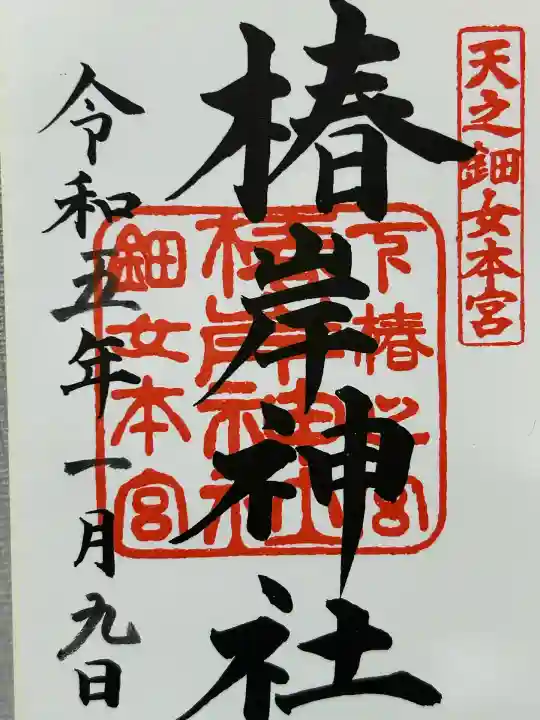 天之鈿女本宮
椿岸神社
下椿之宮
椿岸神社
鈿女本宮
令和五年一月九日